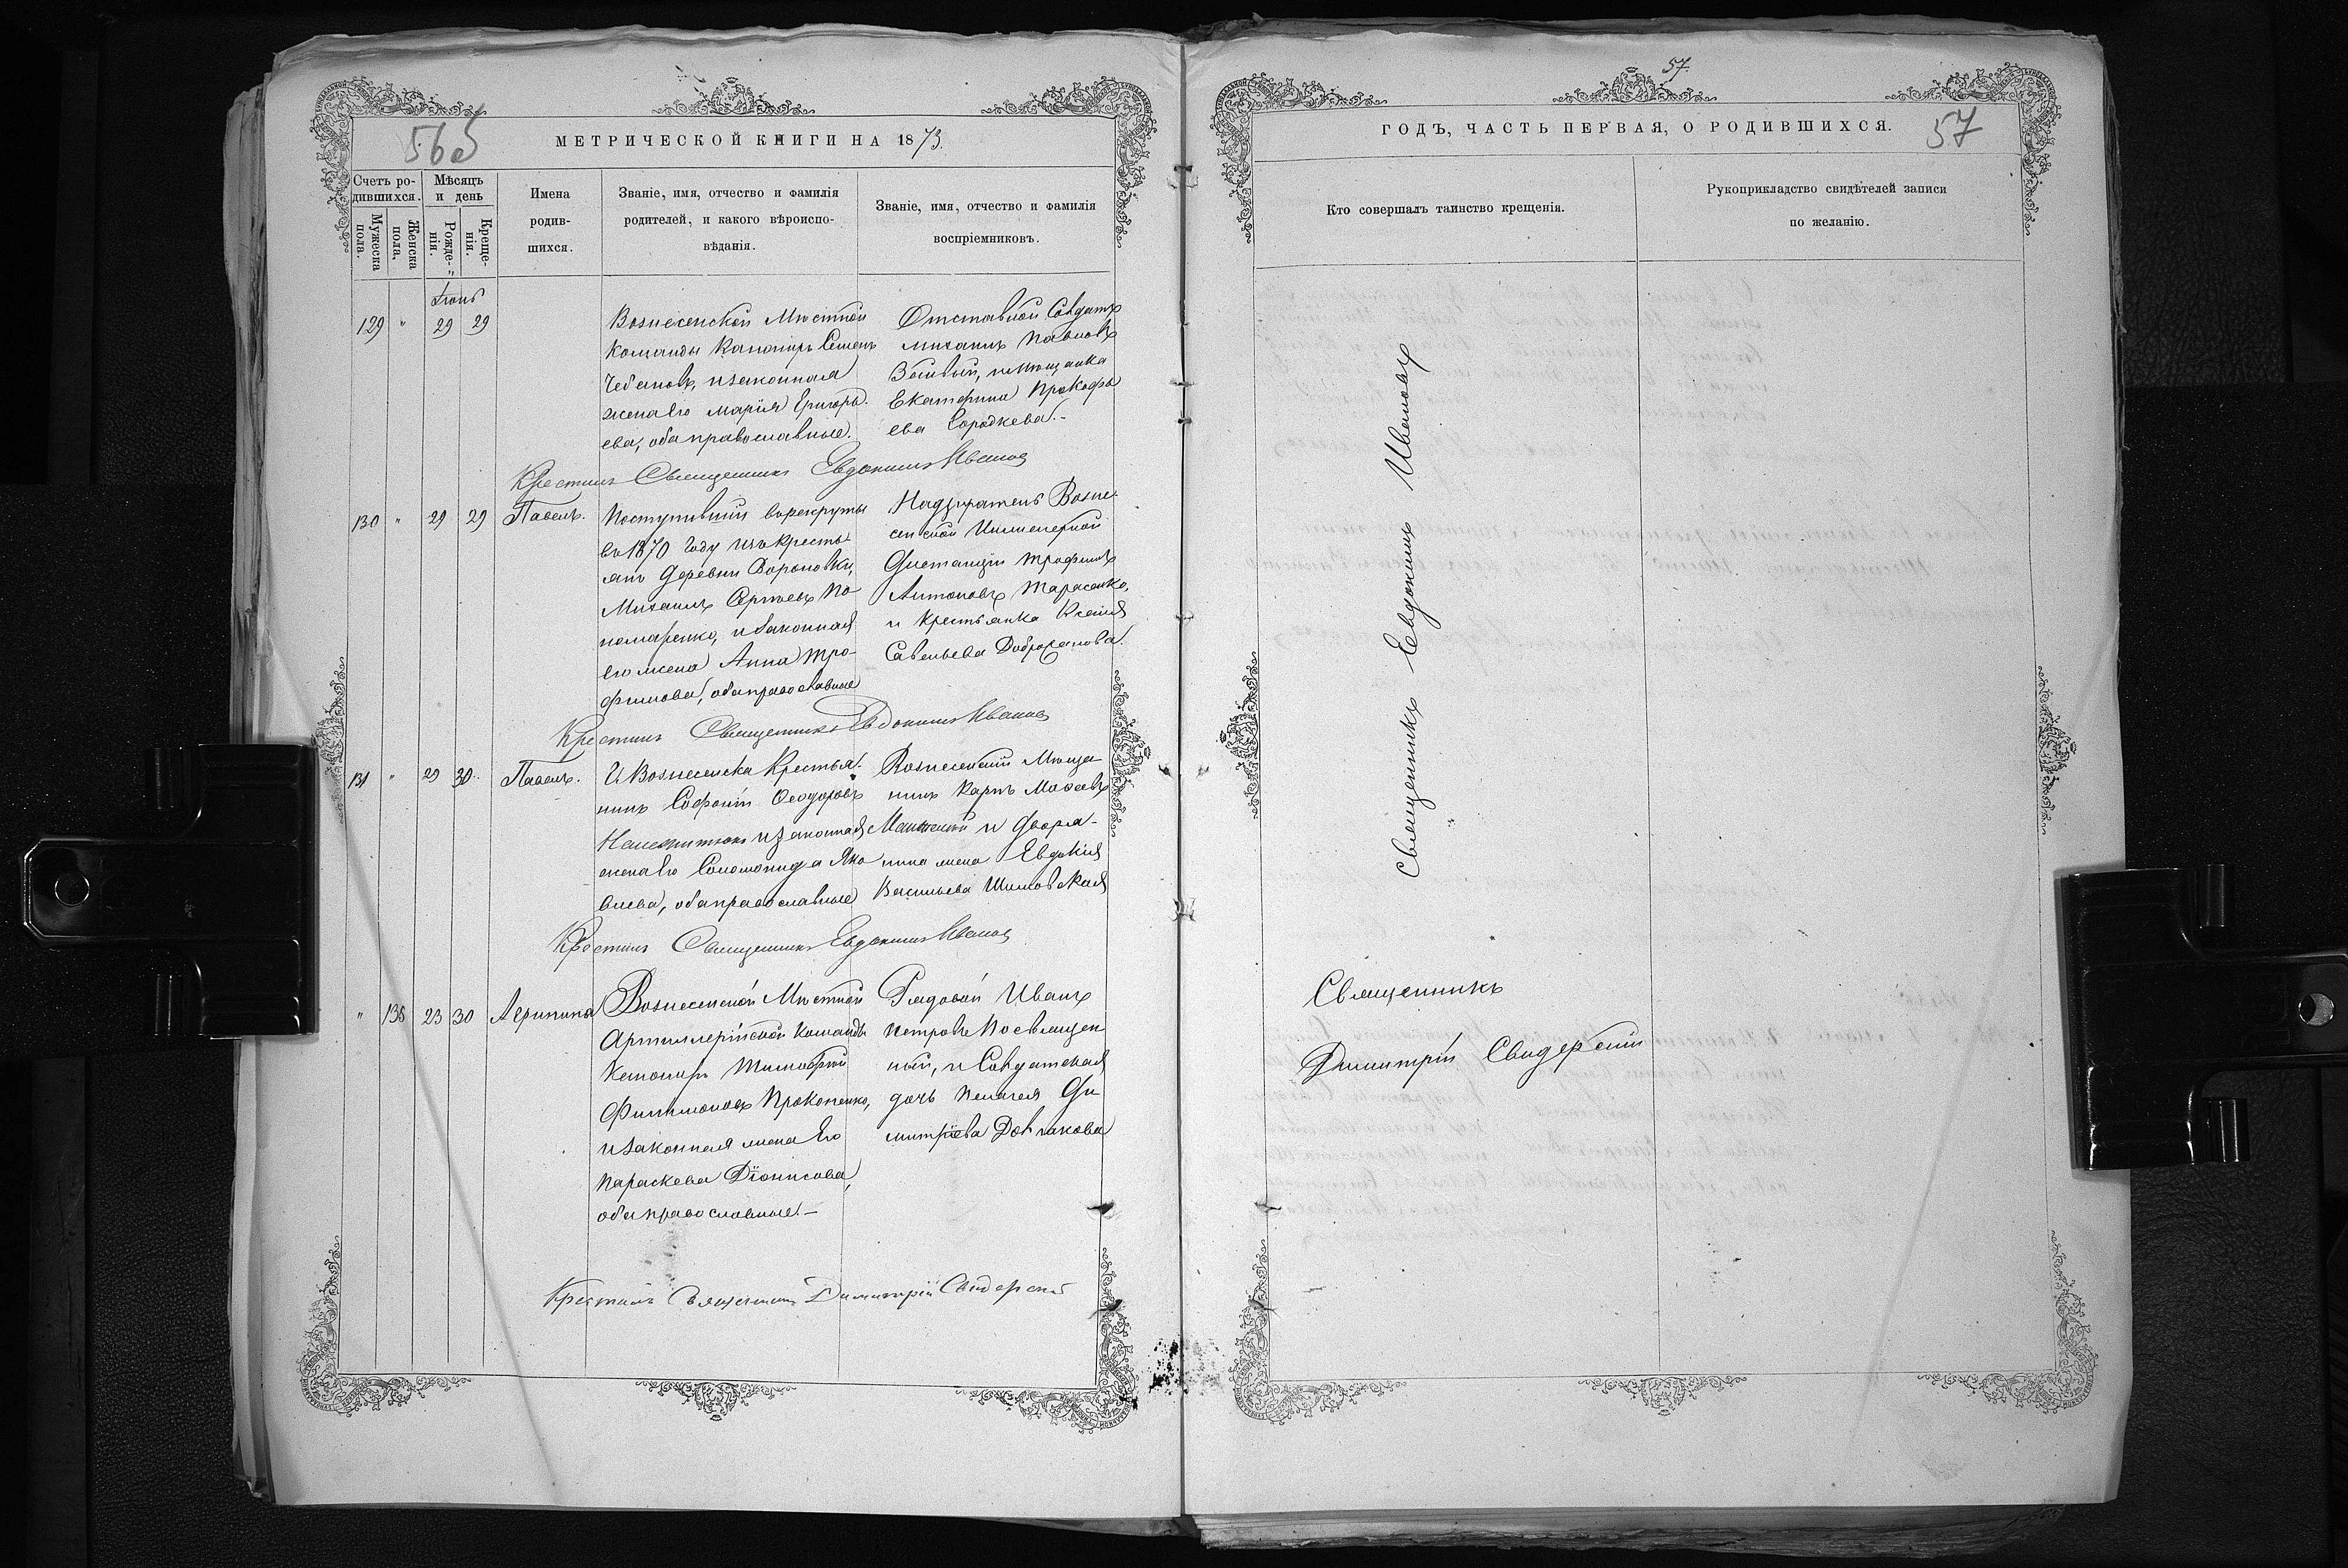 56 об
МЕТРИЧЕСКОЙ КНИГИ НА 1873.
Счетъ ро-
дившихся.
Мѣсяцъ
и день
Мужеска
пола.
Женска
пола.
Рожде-
нія.
Креще-
нія.
Имена
родив-
шихся.
Званіе, имя, отчество и фамилія
родителей, и какого вѣроиспо-
вѣданія.
Званіе, имя, отчество и фамилія
воспріемниковъ.
Іюнь
129 " 29 29
Вознесенской Мѣстной
команды Семенъ
Чебановъ, и законная
жена его Марія Григорь-
ева, оба православные.
Отставной Солдатъ
Михаилъ Павловъ
и мѣщанка
Екатерина Прокофь
ева
Крестилъ Священникъ Евдокимъ Ивановъ
130 " 29 29 Павелъ.
Поступившій в рекруты
въ 1870 году изъ кресть-
янъ деревни Вороновки,
Михаилъ Сергѣевъ По-
номаренко, и законная
его жена Анна Тро-
фимова, оба православные
Надзиратель Возне-
сенской Инженерной
Дистанціи Трофимъ
Антоновъ Тарасенко,
и Крестьянка Ксенія
Савельева
Крестилъ Священникъ Евдокимъ Ивановъ
131 " 29 30 Павелъ.
Г. Вознесенска Крестья-
нинъ Софроній Ѳеодоровъ
и законная
жена его Соломонида Яко
влева, оба православные
Вознесенскій Мѣща-
нинъ Карпъ
и Дворя-
нина жена Евдокія
Васильева
Крестилъ Священникъ Евдокимъ Ивановъ
" 136 23 30 Агрипина
Вознесенской Мѣстной
Артиллерійской команды
Тимофей
Филимоновъ Прокопенко,
и законная жена его
Параскева Діонисова,
оба православные. —
Рядовой Иванъ
Петровъ Посвящен
ный, и Солдатская
дочь Пелагея Ди
митріева
Крестилъ Священникъ Димитрій Свидерскій
57.
57
ГОДЪ, ЧАСТЬ ПЕРВАЯ, О РОДИВШИХСЯ.
Кто совершалъ таинство крещенія.
Рукоприкладство свидѣтелей записи
по желанію.
Священникъ Евдокимъ Ивановъ
Священникъ
Димитрій Свидерскій